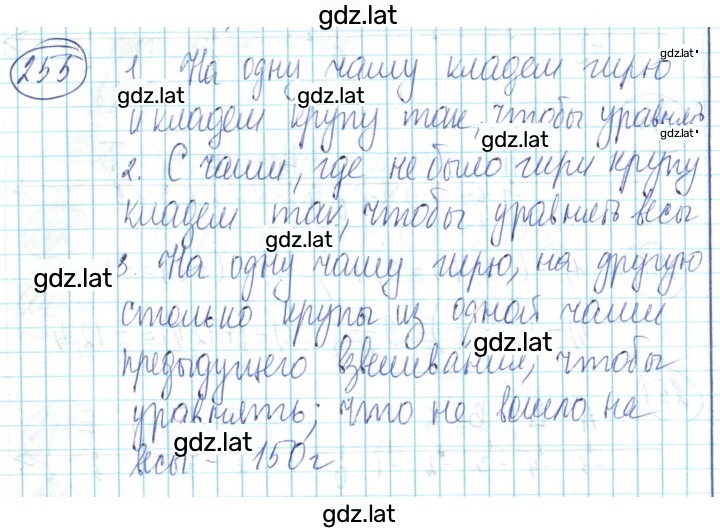 gdz.lat
255 1 На одну чашу кладем гирю
gdz.lat
gdz.lat gdz.lat
и кладем крупу так, чтобы уравнять
gdz.lat gdz.lat
2. С чаши, где не было гири крупу
кладем так, чтобы уравнять весы
gdz.lat
3. На одну чашу гирю, на другую
gdz.lat
столько крупы из одной чаши
gdz.lat
предыдущего взвешивания, чтобы
уравнять; что не вошло на
gdz.lat
весы - 150г
gdz.lat